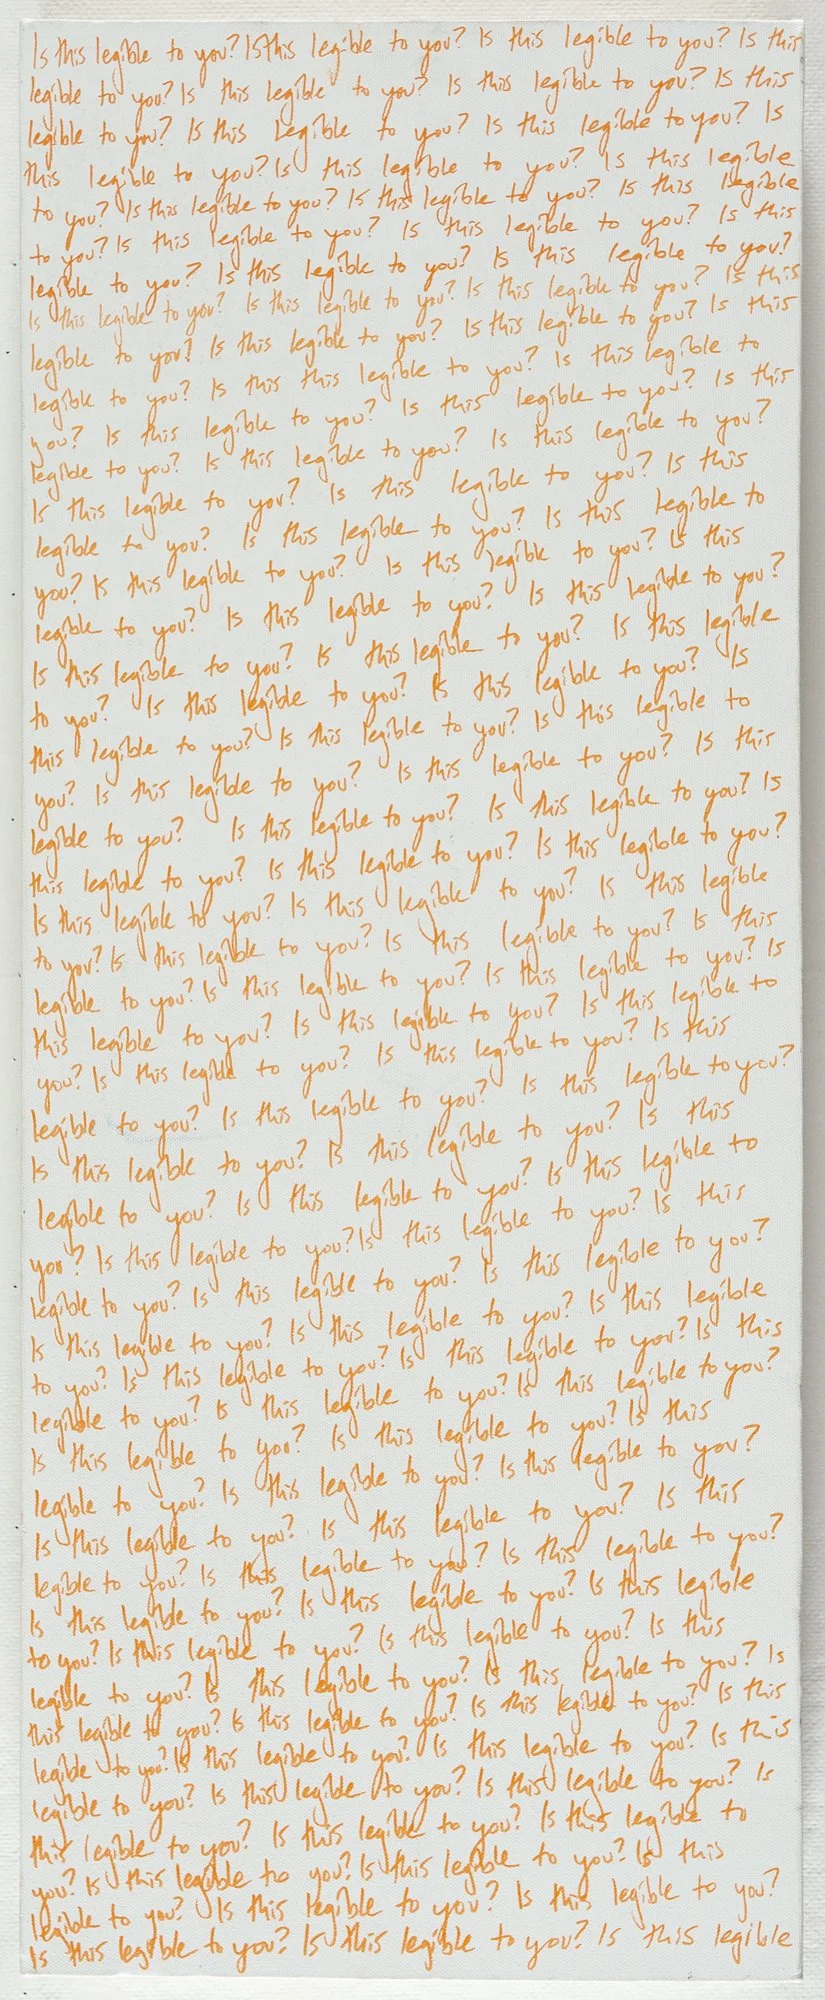 Is this legible to you? Is this legible to you? Is this legible to you? Is this
legible to you? Is this legible to you? Is this legible to you? Is this
legible to you? Is this legible to you? Is this legible to you? Is
this legible to you? Is this legible to you? Is this legible
to you? Is this legible to you? Is this legible to you? Is this legible
to you? Is this legible to you? Is this legible to you? Is this
legible to you? Is this legible to you? Is this legible to you?
Is this legible to you? Is this legible to you? Is this legible to you? Is this
legible to you? Is this legible to you? Is this legible to you? Is this
legible to you? Is this this legible to you? Is this legible to
you? Is this legible to you? Is this legible to you? Is this
legible to you? Is this legible to you? Is this legible to you?
Is this legible to you? Is this legible to you? Is this
legible to you? Is this legible to you? Is this legible to
you? Is this legible to you? Is this legible to you? Is this
legible to you? Is this legible to you? Is this legible to you?
Is this legible to you? Is this legible to you? Is this legible
to you? Is this legible to you? Is this legible to you? Is
this legible to you? Is this legible to you? Is this legible to
you? Is this legible to you? Is this legible to you? Is this
legible to you? Is this legible to you? Is this legible to you? Is
this legible to you? Is this legible to you? Is this legible to you?
Is this legible to you? Is this legible to you? Is this legible
to you? Is this legible to you? Is this legible to you? Is this
legible to you? Is this legible to you? Is this legible to you? Is
this legible to you? Is this legible to you? Is this legible to
you? Is this legible to you? Is this legible to you? Is this
legible to you? Is this legible to you? Is this legible to you?
Is this legible to you? Is this legible to you? Is this
legible to you? Is this legible to you? Is this legible to
you? Is this legible to you? Is this legible to you? Is this
legible to you? Is this legible to you? Is this legible to you?
Is this legible to you? Is this legible to you? Is this legible
to you? Is this legible to you? Is this legible to you? Is this
legible to you? Is this legible to you? Is this legible to you?
Is this legible to you? Is this legible to you? Is this
legible to you? Is this legible to you? Is this legible to you?
Is this legible to you? Is this legible to you? Is this
legible to you? Is this legible to you? Is this legible to you?
Is this legible to you? Is this legible to you? Is this legible
to you? Is this legible to you? Is this legible to you? Is this
legible to you? Is this legible to you? Is this legible to you? Is
this legible to you? Is this legible to you? Is this legible to you? Is this
legible to you? Is this legible to you? Is this legible to you? Is this
legible to you? Is this legible to you? Is this legible to you? Is
this legible to you? Is this legible to you? Is this legible to
you? Is this legible to you? Is this legible to you? Is this
legible to you? Is this legible to you? Is this legible to you?
Is this legible to you? Is this legible to you? Is this legible